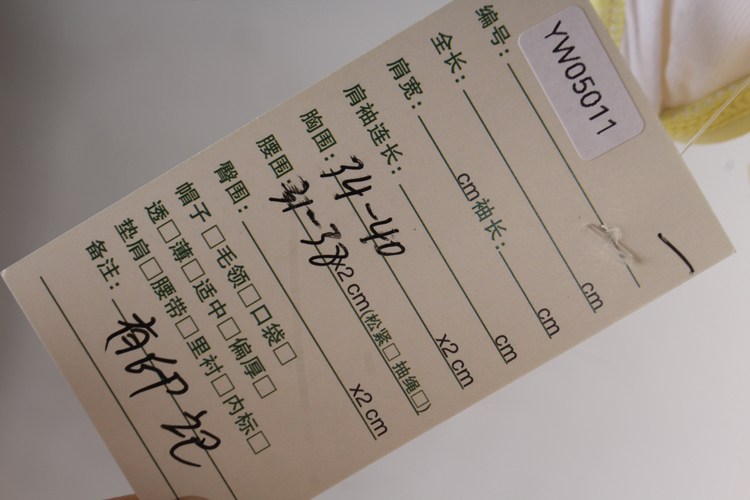 编号: YW05011
全长: cm 袖长: cm
肩宽: cm
肩袖连长: cm
胸围: 34-40 x2 cm
腰围: 31-37 x2 cm (松紧□ 抽绳□)
臀围: x2 cm
帽子□毛领□口袋□
透□薄□适中□偏厚□
垫肩□腰带□里衬□内标□
备注: 有印记